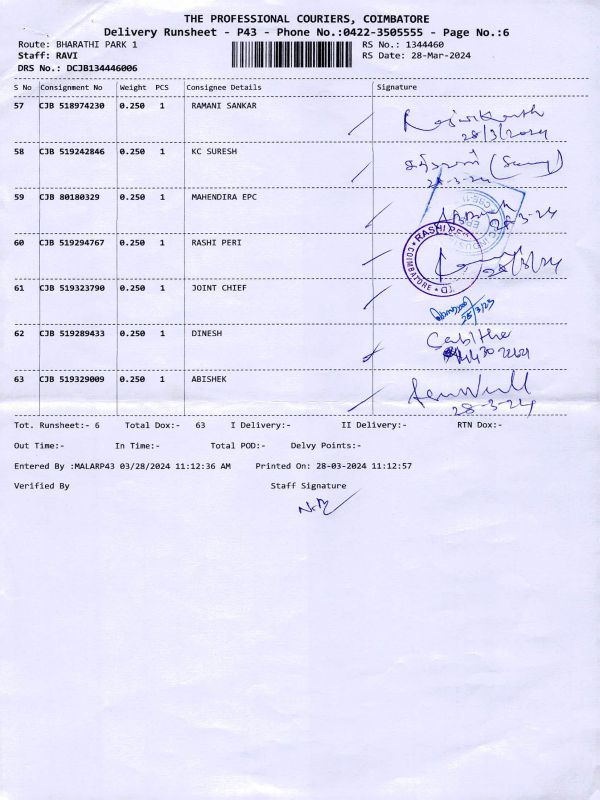 THE PROFESSIONAL COURIERS, COIMBATORE
Delivery Runsheet - P43 - Phone No.:0422-3505555 - Page No.:6
Route: BHARATHI PARK 1
RS No.: 1344460
Staff: RAVI
RS Date: 28-Mar-2024
DRS No.: DCJB134446006
S No Consignment No Weight PCS Consignee Details Signature
57 CJB 518974230 0.250 1 RAMANI SANKAR
28/3/2024
58 CJB 519242846 0.250 1 KC SURESH
28-3-24
59 CJB 80180329 0.250 1 MAHENDIRA EPC
28-3-24
60 CJB 519294767 0.250 1 RASHI PERI
RASHI PE
COIMBATORE
28/3/24
61 CJB 519323790 0.250 1 JOINT CHIEF
62 CJB 519289433 0.250 1 DINESH
63 CJB 519329009 0.250 1 ABISHEK
28-3-24
Tot. Runsheet:- 6 Total Dox:- 63 I Delivery:- II Delivery:- RTN Dox:-
Out Time:- In Time:- Total POD:- Delvy Points:-
Entered By :MALARP43 03/28/2024 11:12:36 AM Printed On: 28-03-2024 11:12:57
Verified By Staff Signature